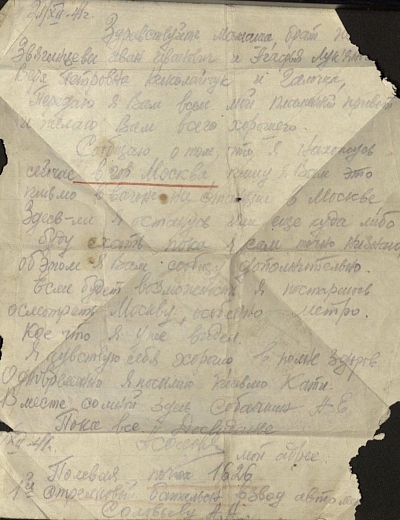 21/XII-41г.
Здравствуйте Мамаша, брат
Звягинцевы Иван Иванович и
Петровна и Галочка,
Передаю я Вам всем мой пламенный привет
и желаю Вам всего хорошего.
Сообщаю о том, что я нахожусь
сейчас в гор Москва пишу я Вам это
письмо в вагоне на станции в Москве
Здесь-ли я останусь или еще куда либо
буду ехать пока я сам точно не знаю
об этом я Вам сообщу дополнительно.
Если будет возможность я постараюсь
осмотреть Москву, особенно метро.
Кое что я уже видел.
Я чувствую себя хорошо в полне здоров
Одновременно я посылаю письмо Кати.
Вместе со мной здесь А.Е.
Пока все до свидание
XII 41г.
мой адрес
Полевая почта 1626
1й стрелковый батальон взвод автома
Соловьеву А.